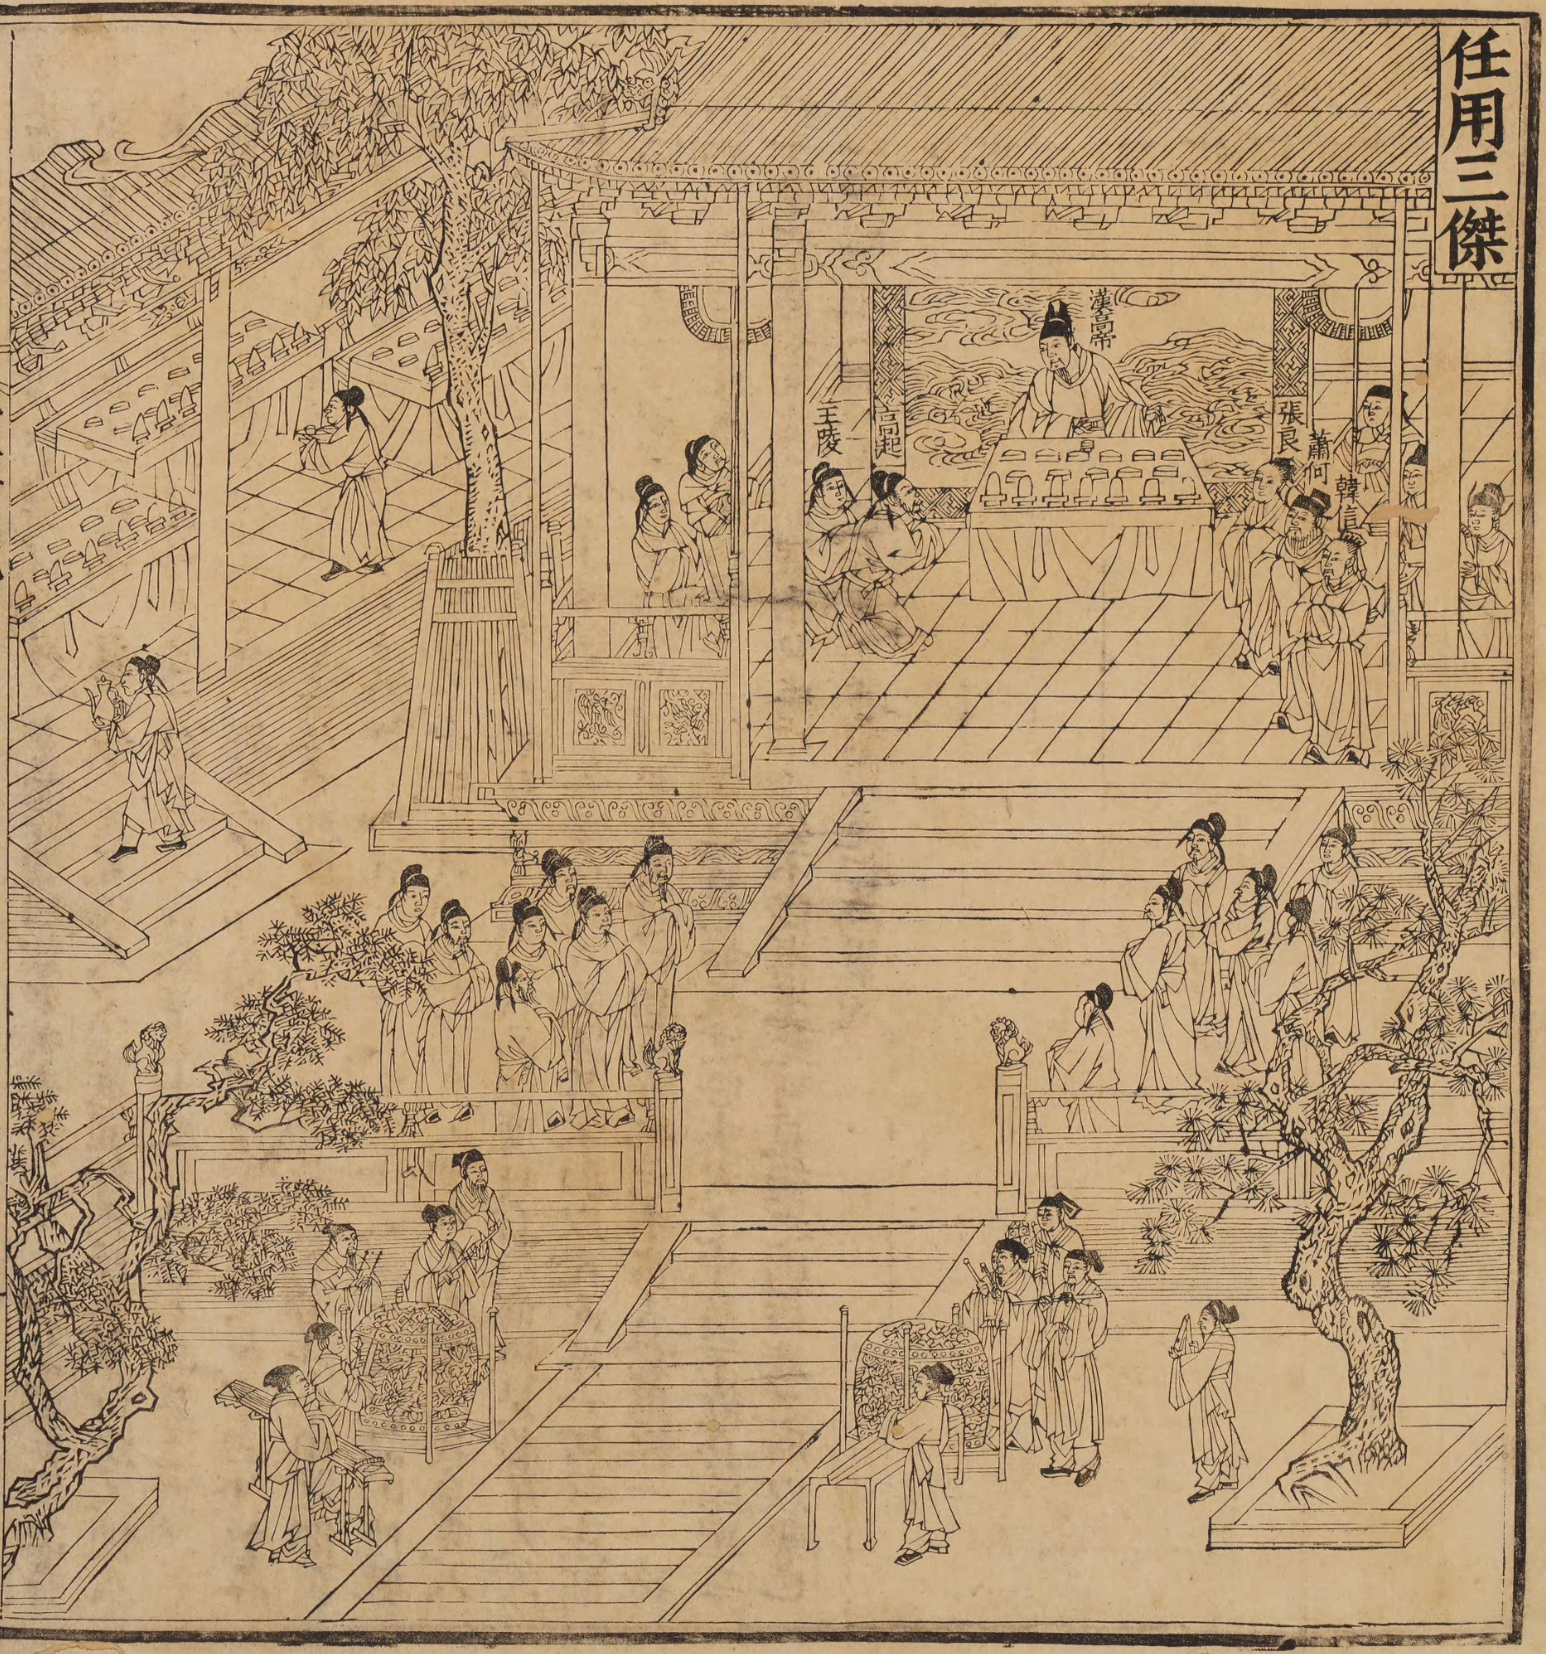 任用三傑
漢高帝
張良
蕭何
韓信
高起
王陵